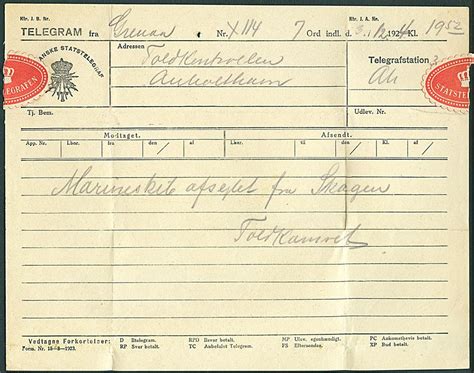 Ktr. J. B. Nr.
Ktr. J. A. Nr.
TELEGRAM fra Grenaa Nr. X 114 7 Ord indl. d. 5/12 1924 Kl. 1952
DANSKE STATSTELEGRAF
Adressen
Toldkontrollen
Anholthavn
Telegrafstation
Ah
TELEGRAFEN
STATSTELE
Tj. Bem.
Udlev. Nr.
Modtaget.
Afsendt.
App. Nr.
Lbnr.
fra
den
Kl.
Lbnr.
til
den
Kl.
af
Marineskib afsejlet fra Skagen
Toldkamret
Vedtagne Forkortelser:
D Iltelegram.
RPD Ilsvar betalt.
MP Udlev. egenhændigt.
PC Ankomstbevis betalt.
RP Svar betalt.
TC Anbefalet Telegram.
FS Eftersendes.
XP Bud betalt.
Form. Nr.
1923.